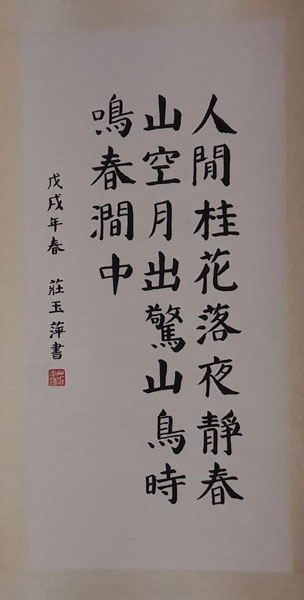 人閒桂花落夜靜春
山空月出驚山鳥時
鳴春澗中
戊戌年春 莊玉萍書